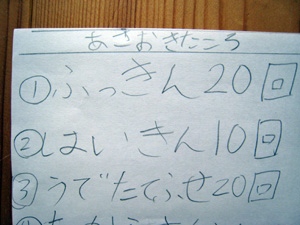 あさおきたころ
①ふっきん20回
②はいきん10回
③うでたてふせ20回